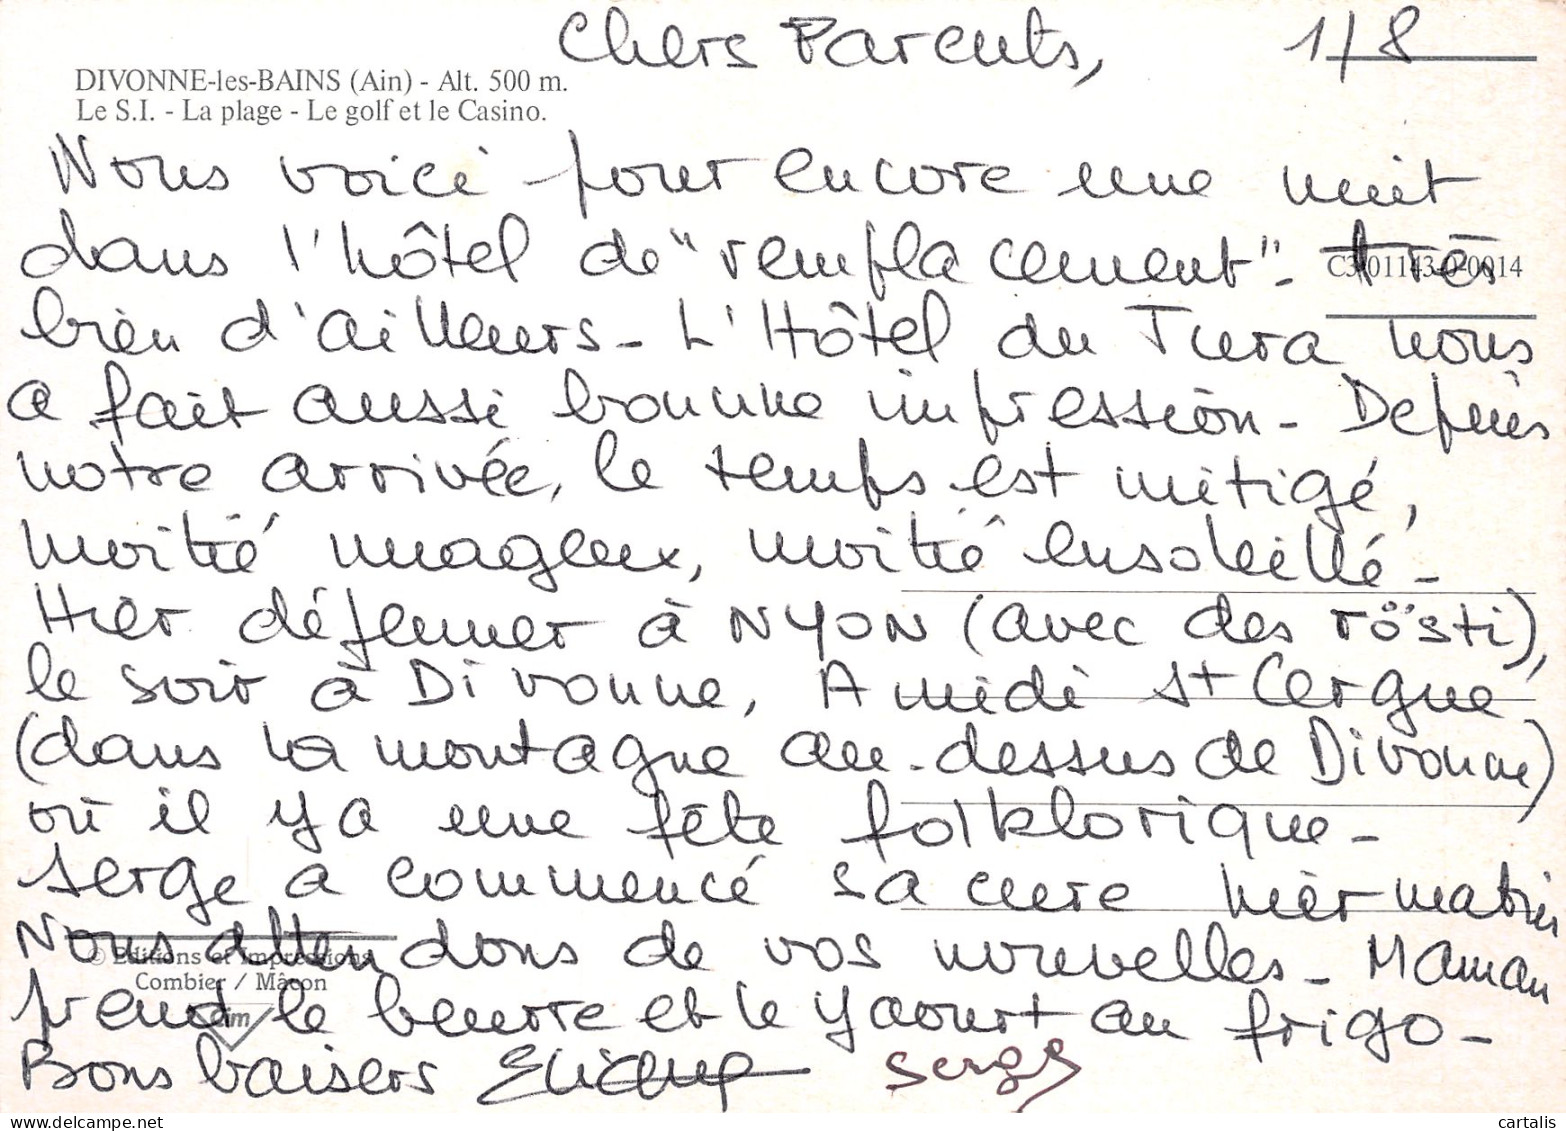 Chers Parents, 1/8
DIVONNE-les-BAINS (Ain) - Alt. 500 m.
Le S.I. - La plage - Le golf et le Casino.
Nous voici pour encore une nuit
dans l'hôtel de "remplacement". très
C3 01143 0-0014
bien d'ailleurs - L'Hôtel du Jura nous
a fait aussi bonne impression - Depuis
notre arrivée, le temps est mitigé,
moitié nuageux, moitié ensoleillé -
Hier déjeuner à NYON (avec des rösti),
le soir à Divonne, A midi St Cergue
(dans la montagne au-dessus de Divonne)
où il y a une fête folklorique -
Serge a commencé sa cure hier matin
Nous attendons de vos nouvelles - Maman
© Editions et Impressions
Combier / Mâcon
prend le beurre et le yaourt au frigo -
cim
Bons baisers Serge
www.delcampe.net
cartalis